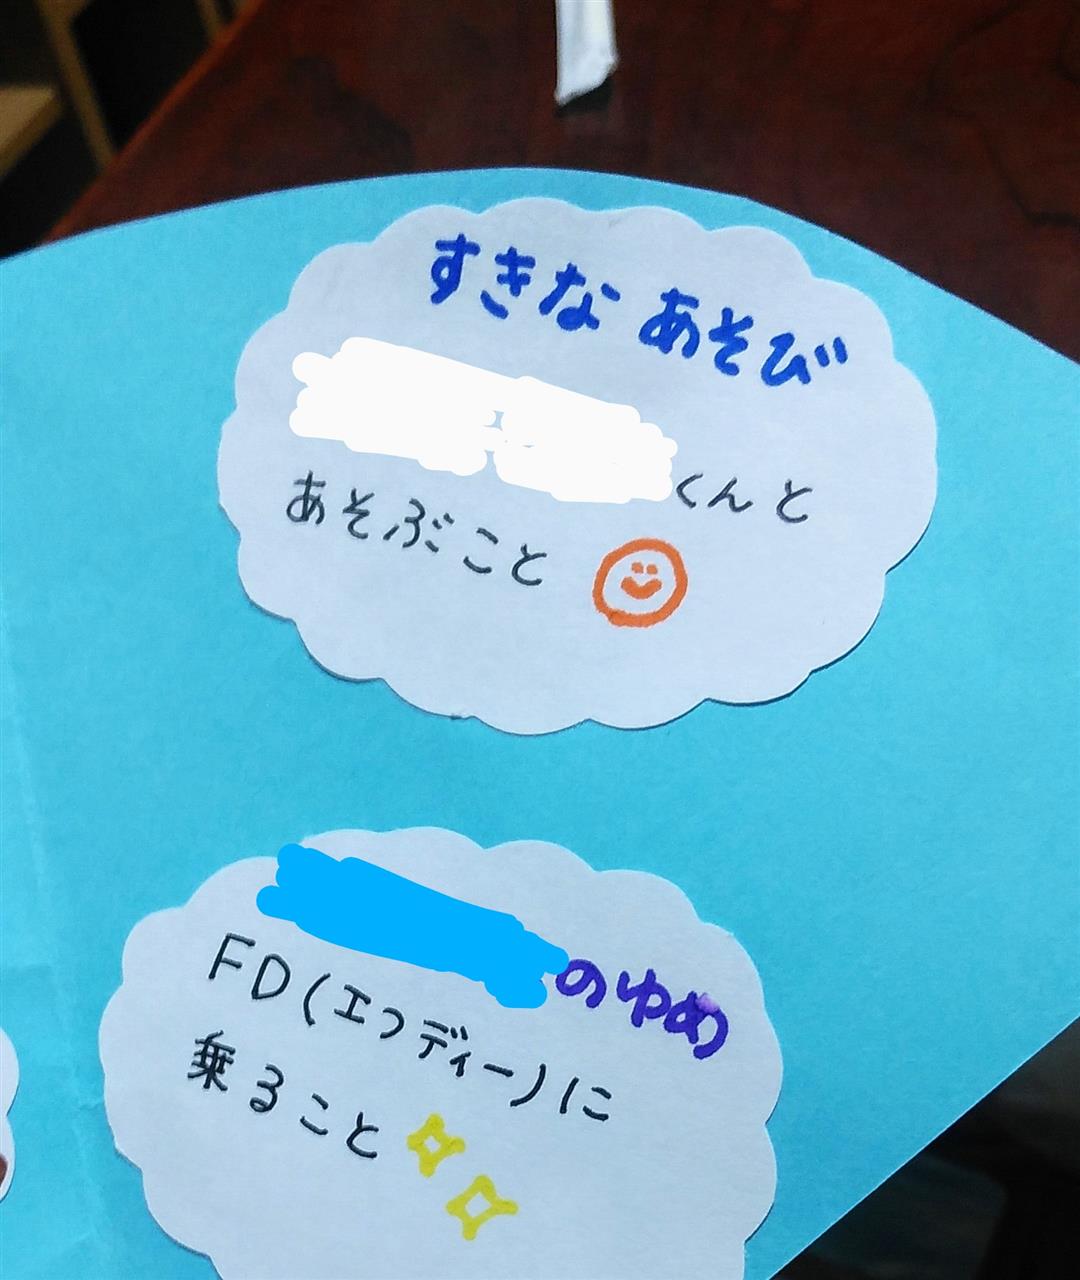 すきな あそび
くんと
あそぶこと
のゆめ
FD(エフディー)に
乗ること